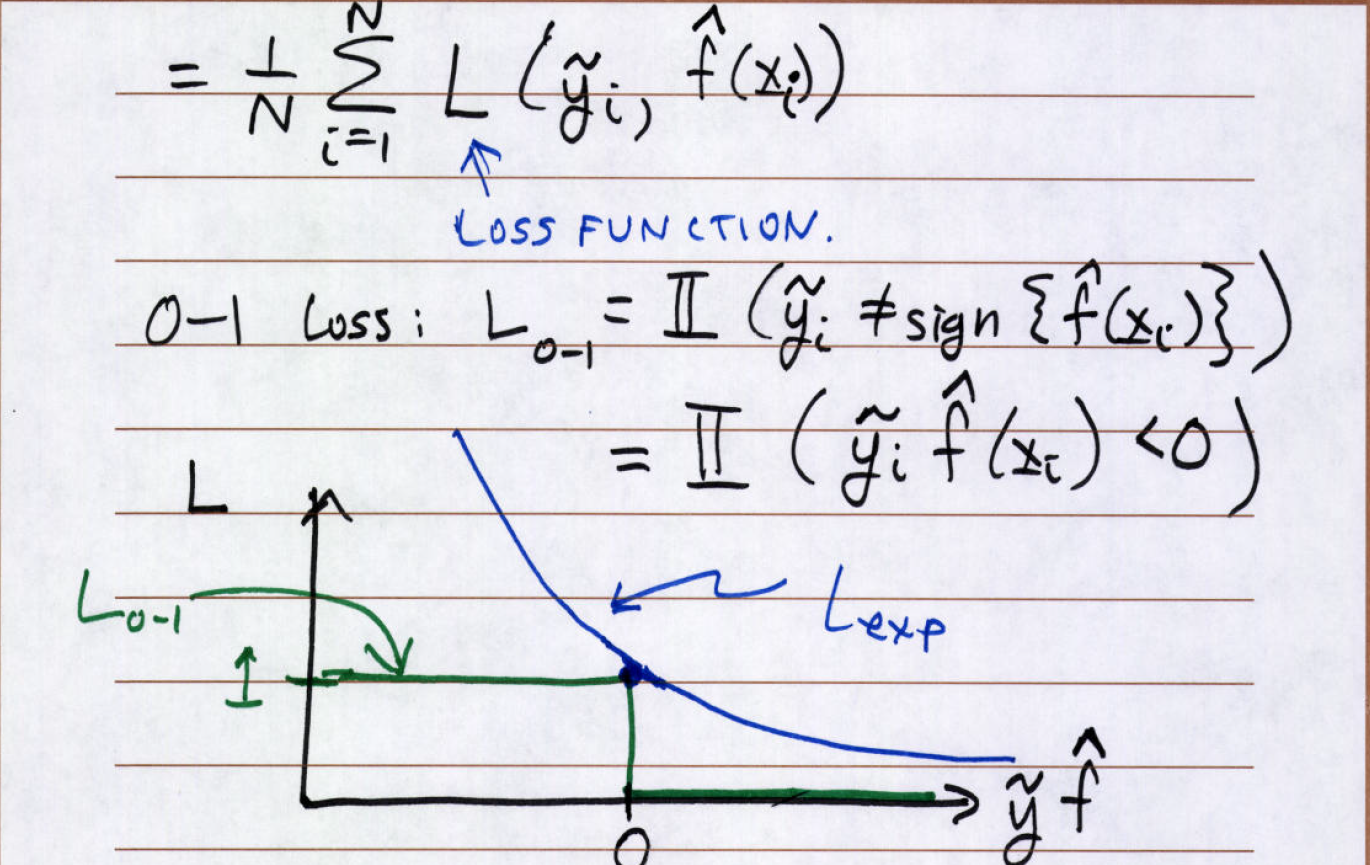 = 1/N ∑_{i=1}^{N} L (ỹ_i, f̂(x̲_i))
LOSS FUNCTION.
0-1 Loss: L_{0-1} = 𝕀 (ỹ_i ≠ sign {f̂(x̲_i)})
= 𝕀 (ỹ_i f̂(x̲_i) < 0)
L
L_{0-1}
L_{exp}
1
ỹ f̂
0